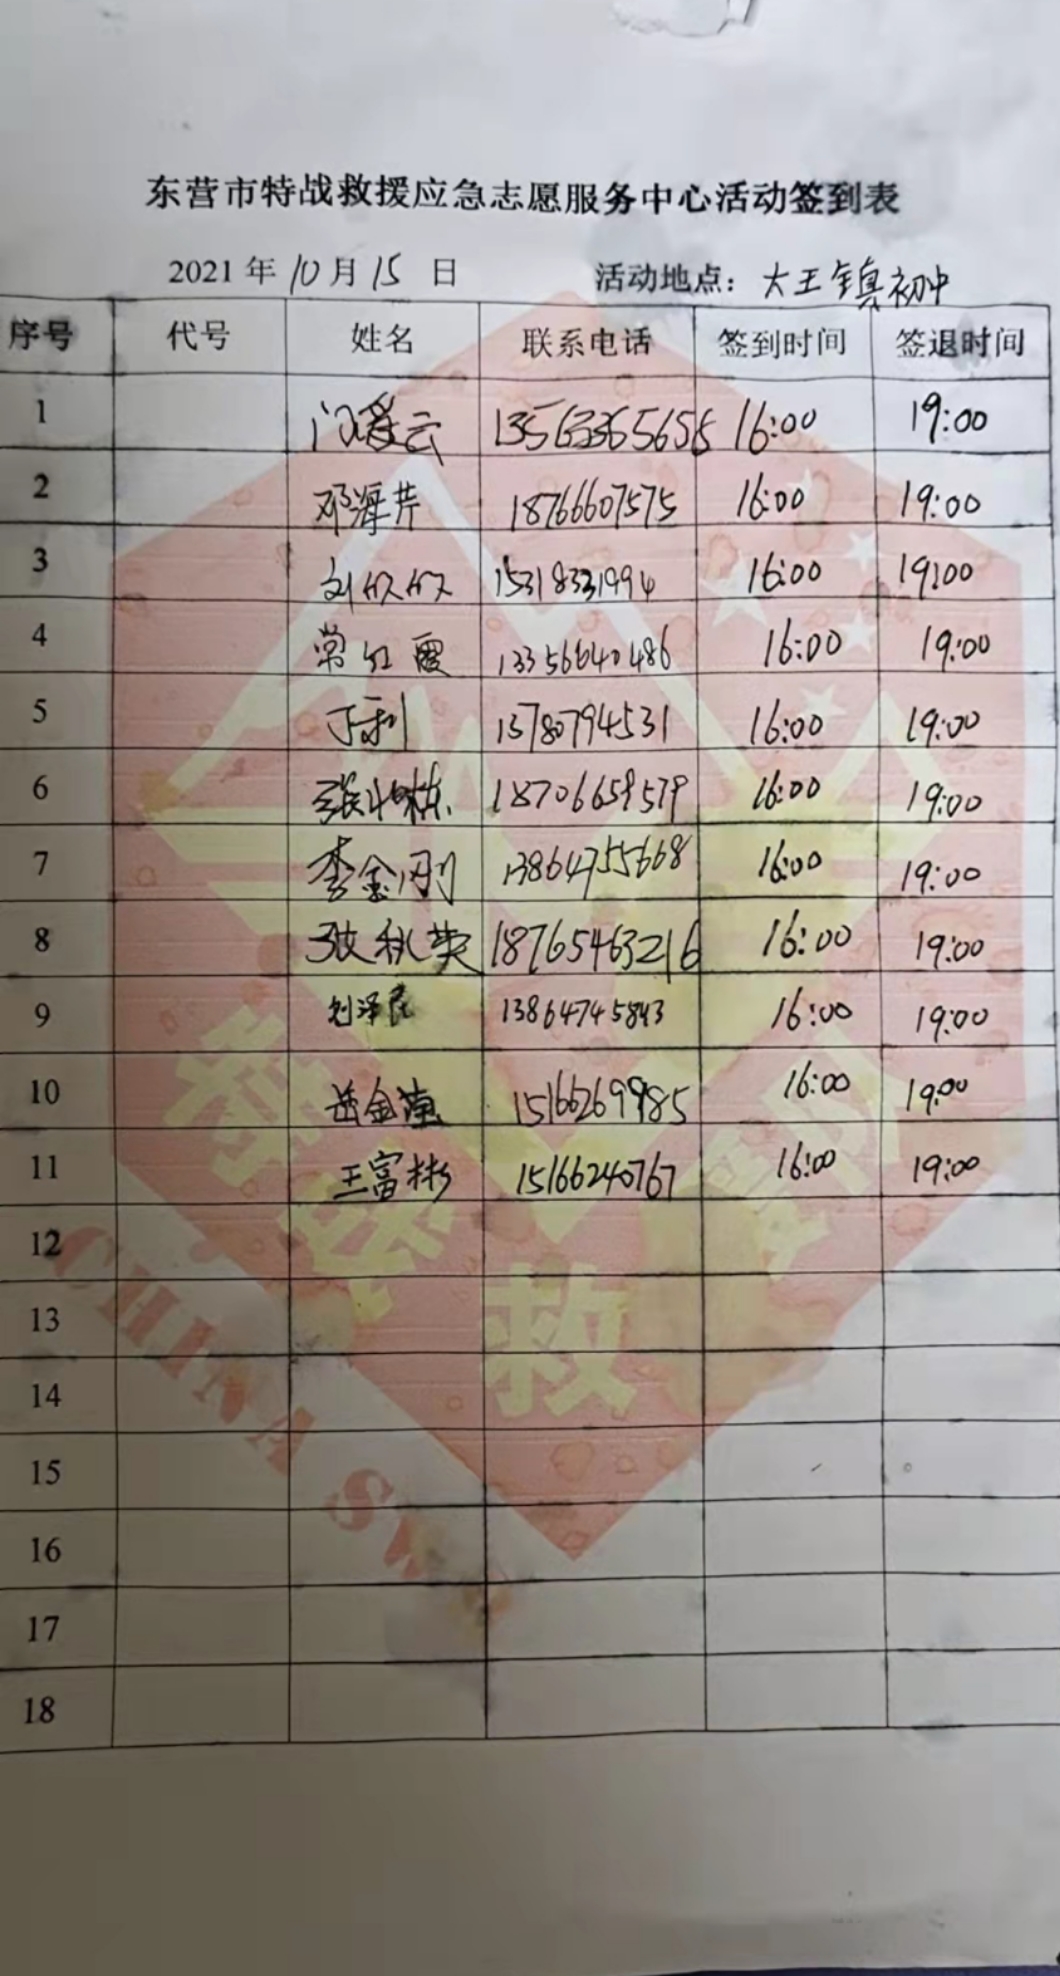 东营市特战救援应急志愿服务中心活动签到表
2021年10月15日 活动地点：大王镇初中
序号 代号 姓名 联系电话 签到时间 签退时间
1 门爱云 13563365656 16:00 19:00
2 邓海芹 18766607575 16:00 19:00
3 刘欣欣 15318331994 16:00 19:00
4 常红霞 13356640486 16:00 19:00
5 丁利 13780794531 16:00 19:00
6 18706659579 16:00 19:00
7 李金刚 13864755668 16:00 19:00
8 张秋英 18765463216 16:00 19:00
9 刘泽民 13864745843 16:00 19:00
10 岳金莲 15166269985 16:00 19:00
11 王富彬 15166240767 16:00 19:00
12
13
14
15
16
17
18
救
CHINA SW